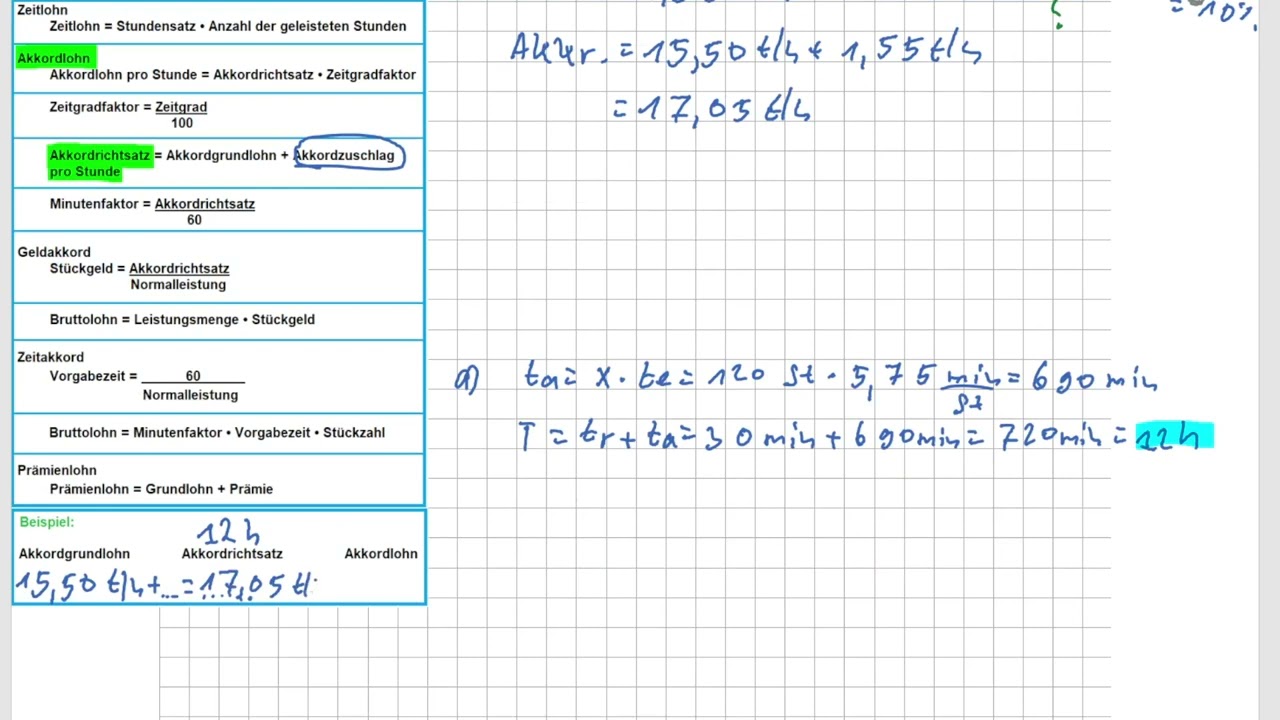 Zeitlohn
Zeitlohn = Stundensatz • Anzahl der geleisteten Stunden
Akkordlohn
Akkordlohn pro Stunde = Akkordrichtsatz • Zeitgradfaktor
Zeitgradfaktor = Zeitgrad
100
Akkordrichtsatz = Akkordgrundlohn + Akkordzuschlag
pro Stunde
Minutenfaktor = Akkordrichtsatz
60
Geldakkord
Stückgeld = Akkordrichtsatz
Normalleistung
Bruttolohn = Leistungsmenge • Stückgeld
Zeitakkord
Vorgabezeit = 60
Normalleistung
Bruttolohn = Minutenfaktor • Vorgabezeit • Stückzahl
Prämienlohn
Prämienlohn = Grundlohn + Prämie
Beispiel:
12 h
Akkordgrundlohn Akkordrichtsatz Akkordlohn
15,50 €/h + ... = 17,05 €/
?
= 10%
Akkr. = 15,50 €/h + 1,55 €/h
= 17,05 €/h
a) ta = x · te = 120 St · 5,75 min = 690 min
St
T = tr + ta = 30 min + 690 min = 720 min = 12 h